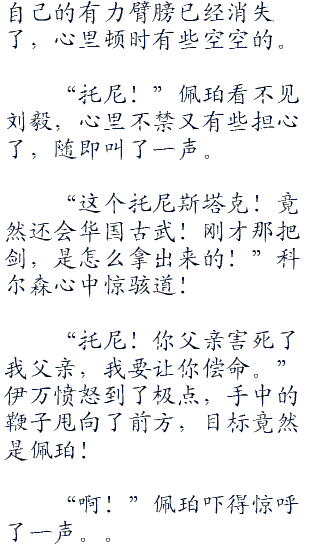 自己的有力臂膀已经消失
了，心里顿时有些空空的。
“托尼！”佩珀看不见
刘毅，心里不禁又有些担心
了，随即叫了一声。
“这个托尼斯塔克！竟
然还会华国古武！刚才那把
剑，是怎么拿出来的！”科
尔森心中惊骇道！
“托尼！你父亲害死了
我父亲，我要让你偿命。”
伊万愤怒到了极点，手中的
鞭子甩向了前方，目标竟然
是佩珀！
“啊！”佩珀吓得惊呼
了一声。。